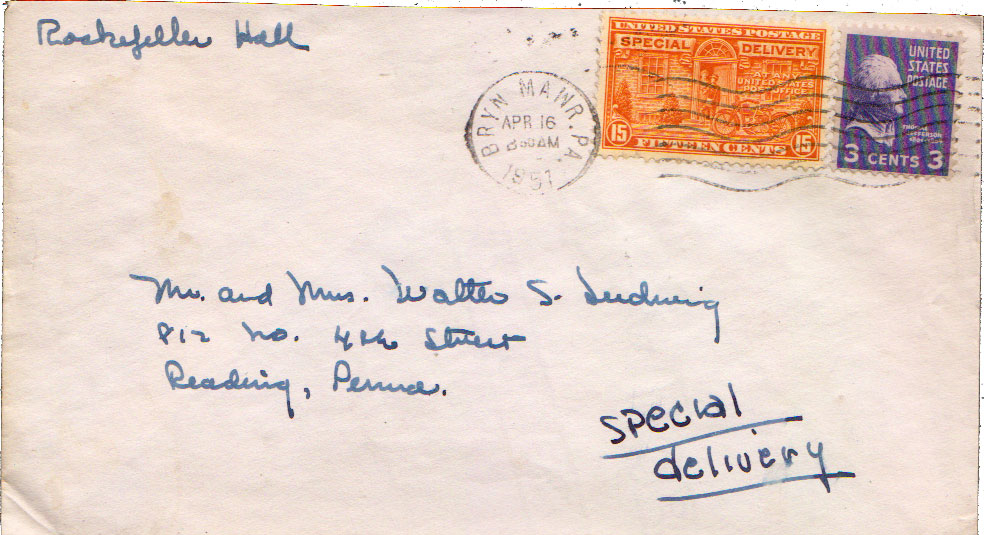 Rockefeller Hall
UNITED STATES POSTAGE
SPECIAL DELIVERY
AT ANY
UNITED STATES
POST OFFICE
15 15
FIFTEEN CENTS
UNITED
STATES
POSTAGE
THOMAS
JEFFERSON
3 CENTS 3
BRYN MAWR. PA.
APR 16
AM
1951
Mr. and Mrs. Walter S. Ludwig
812 No. 4th Street
Reading, Penna.
special
delivery